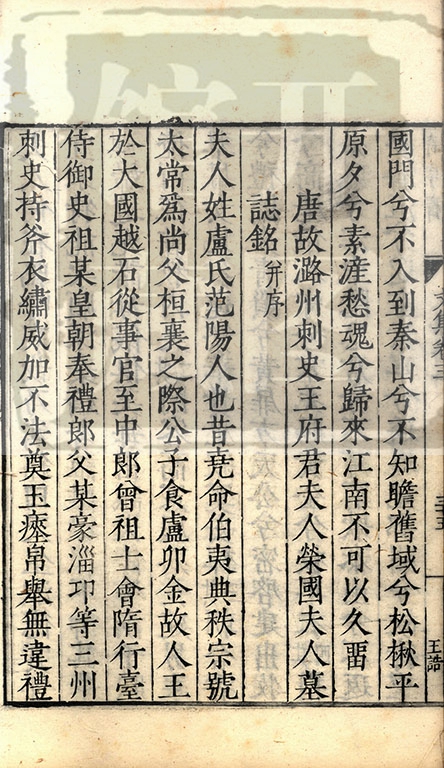 國門兮不入到秦山兮不知瞻舊域兮松楸平
原夕兮素滻愁魂兮歸來江南不可以久畱
唐故潞州刺史王府君夫人榮國夫人墓
誌銘并序
夫人姓盧氏范陽人也昔堯命伯夷典秩宗號
太常爲尚父桓襄之際公子食盧卯金故人王
於大國越石從事官至中郎曾祖士會隋行臺
侍御史祖某皇朝奉禮郎父某豪淄卭等三州
刺史持斧衣繡威加不法奠玉瘞帛舉無違禮
王誥